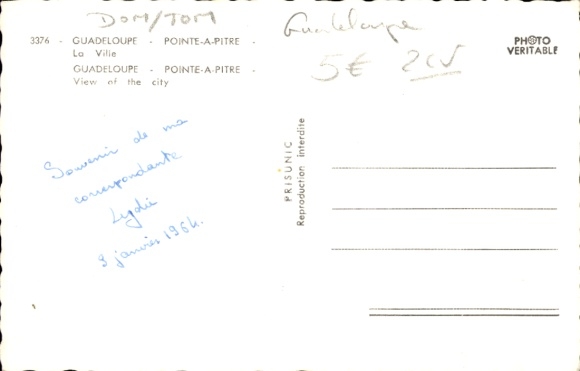 DOM/TOM
Guadeloupe
5€ 2CV
3376 - GUADELOUPE - POINTE-A-PITRE -
La Ville
GUADELOUPE - POINTE-A-PITRE -
View of the city
PHOTO
VERITABLE
Souvenir de ma
correspondante
Lydie
9 janvier 1964.
PRISUNIC
Reproduction interdite